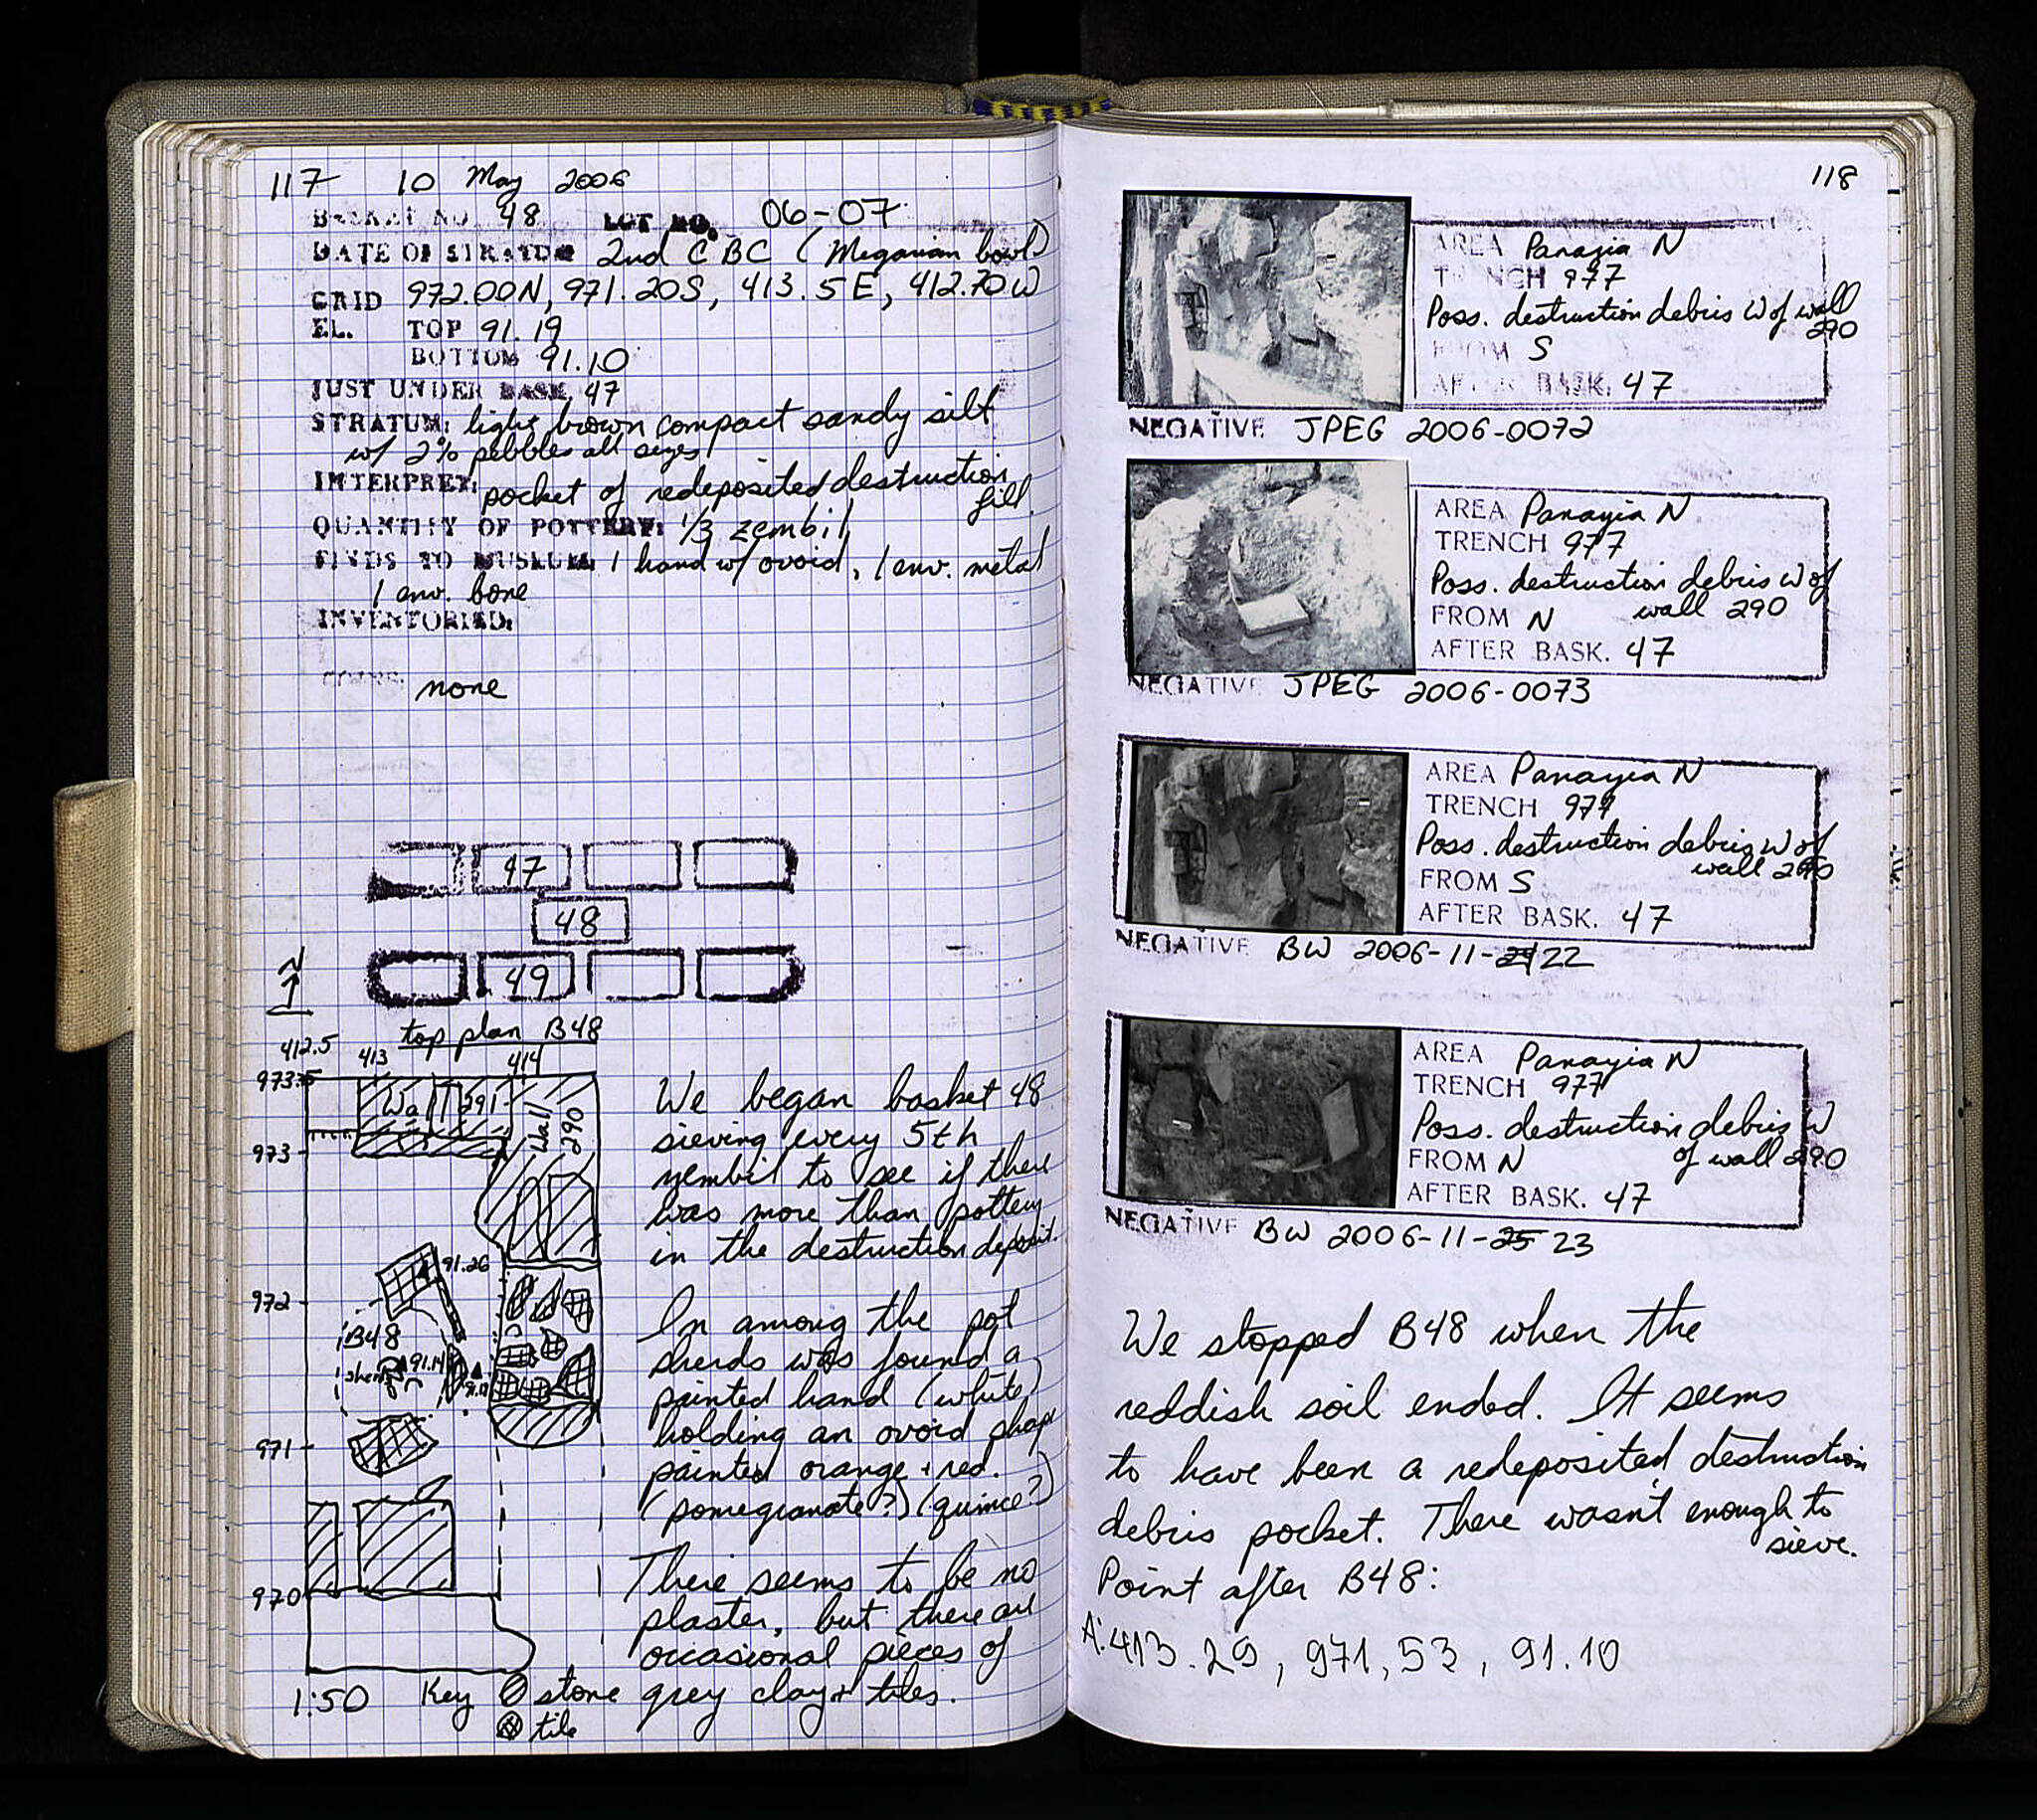 117 10 May 2006
BASKET NO. 48 LOT NO. 06-07
DATE OF STRATUM 2nd C BC (Megarian bowl)
GRID 972.00N, 971.20S, 413.5E, 412.70W
EL. TOP 91.19
BOTTOM 91.10
JUST UNDER BASK. 47
STRATUM: light brown compact sandy silt
w/ 2% pebbles all sizes
INTERPRET: pocket of redeposited destruction
fill.
QUANTITY OF POTTERY: 1/3 zembil
FINDS TO MUSEUM: 1 hand w/ ovoid, 1 env. metal
1 env. bone
INVENTORIED:
COINS: none
47
48
49
N
top plan B48
412.5 413 414
973.5
Wall 291
Wall 290
973
91.26
972
B48
sherds 91.14
971
970
1:50 Key stone
tile
We began basket 48
sieving every 5th
zembil to see if there
was more than pottery
in the destruction deposit.
In among the pot
sherds was found a
painted hand (white)
holding an ovoid shape
painted orange + red.
(pomegranate?) (quince?)
There seems to be no
plaster, but there are
occasional pieces of
grey clay + tiles.
118
AREA Panayia N
TRENCH 977
Poss. destruction debris W of wall
290
FROM S
AFTER BASK. 47
NEGATIVE JPEG 2006-0072
AREA Panayia N
TRENCH 977
Poss. destruction debris W of
FROM N wall 290
AFTER BASK. 47
NEGATIVE JPEG 2006-0073
AREA Panayia N
TRENCH 977
Poss. destruction debris W of
wall 290
FROM S
AFTER BASK. 47
NEGATIVE BW 2006-11-22
AREA Panayia N
TRENCH 977
Poss. destruction debris W
FROM N of wall 290
AFTER BASK. 47
NEGATIVE BW 2006-11-25 23
We stopped B48 when the
reddish soil ended. It seems
to have been a redeposited destruction
debris pocket. There wasn't enough to
sieve.
Point after B48:
A: 413.29, 971,53, 91.10